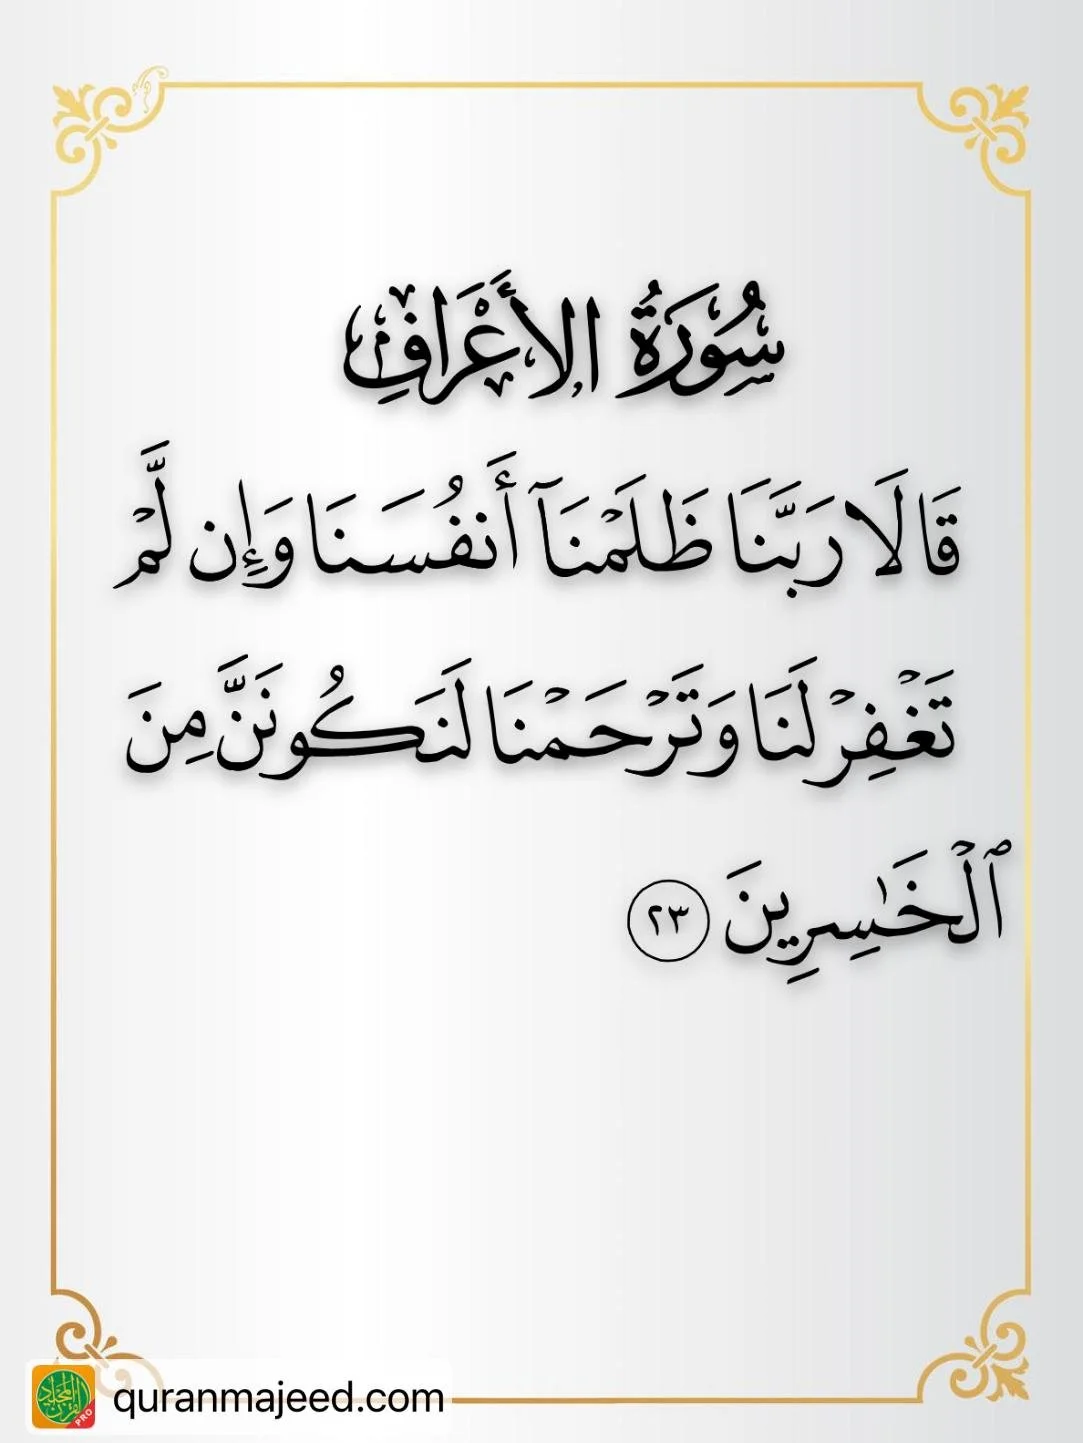 سُورَةُ الأَعْرَافِ
قَالَا رَبَّنَا ظَلَمْنَآ أَنفُسَنَا وَإِن لَّمْ
تَغْفِرْ لَنَا وَتَرْحَمْنَا لَنَكُونَنَّ مِنَ
ٱلْخَـٰسِرِينَ ٢٣
quranmajeed.com